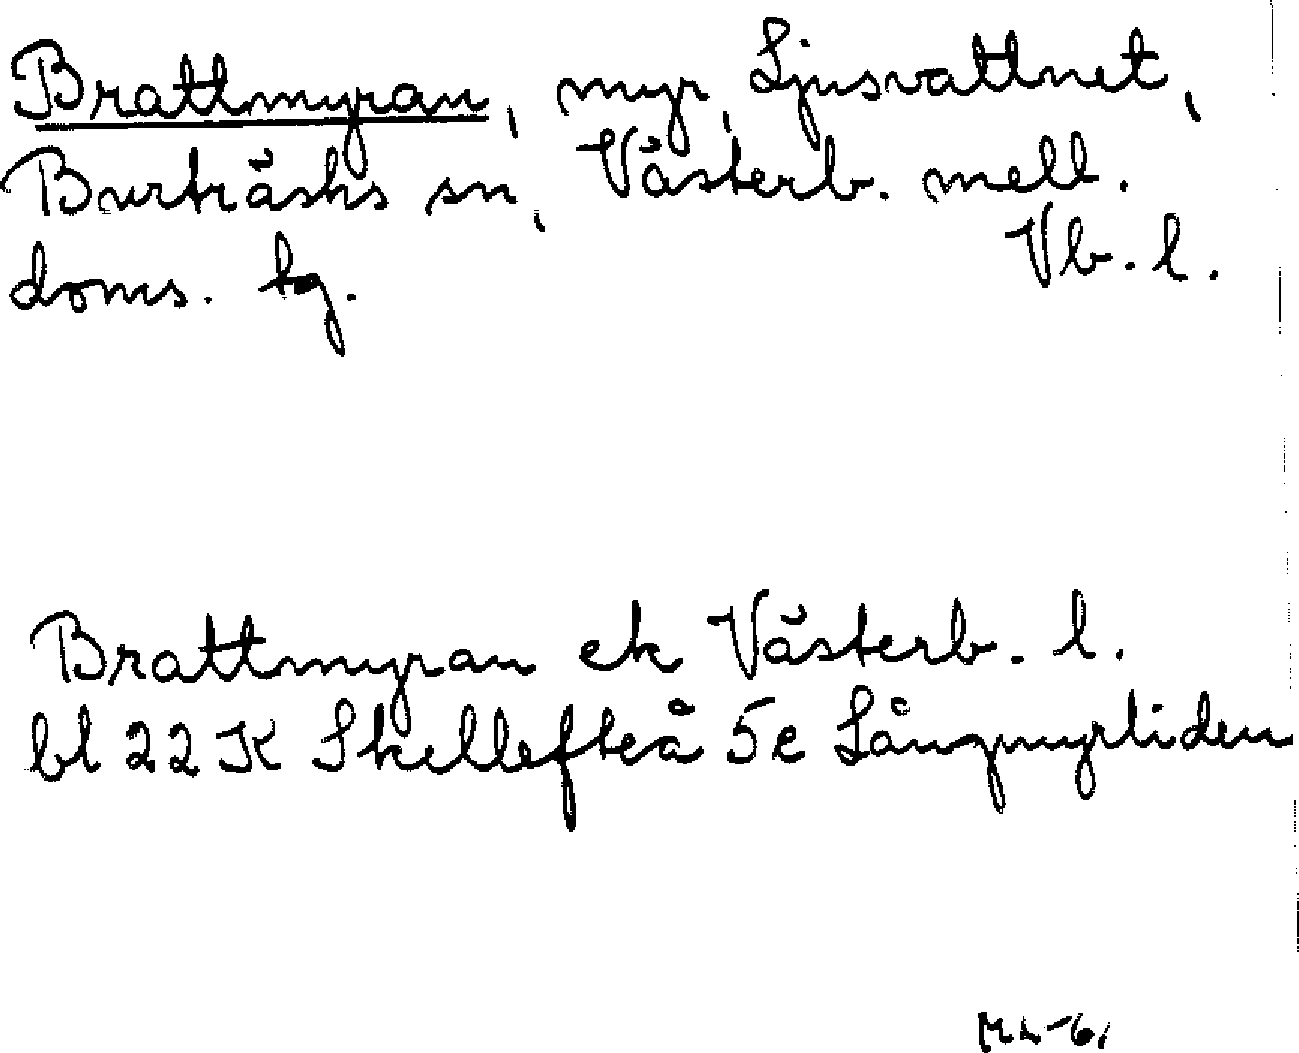 Brattmyran, myr, Ljusvattnet,
Burträsks sn, Västerb. mell.
doms. tg. Vb. l.
Brattmyran ek Västerb. l.
bl 22 K Skellefteå 5e Långmyrliden